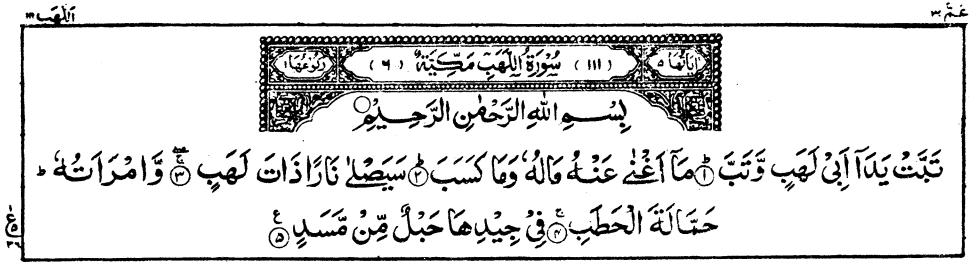 عَمَّ ٣٠
اَللَّهَب ١١١
اٰيَاتُهَا ٥ (١١١) سُوْرَةُ اللَّهَبِ مَكِّيَّةٌ (٦) رُكُوْعُهَا ١
بِسْمِ اللهِ الرَّحْمٰنِ الرَّحِيْمِ
تَبَّتْ يَدَآ اَبِيْ لَهَبٍ وَّتَبَّ ۝١ؕ مَآ اَغْنٰى عَنْهُ مَالُهٗ وَمَا كَسَبَ ۝٢ؕ سَيَصْلٰى نَارًا ذَاتَ لَهَبٍ ۝٣ۚۖ وَّامْرَاَتُهٗ ؕ
حَمَّالَةَ الْحَطَبِ ۝٤ۚ فِيْ جِيْدِهَا حَبْلٌ مِّنْ مَّسَدٍ ۝٥ۧ